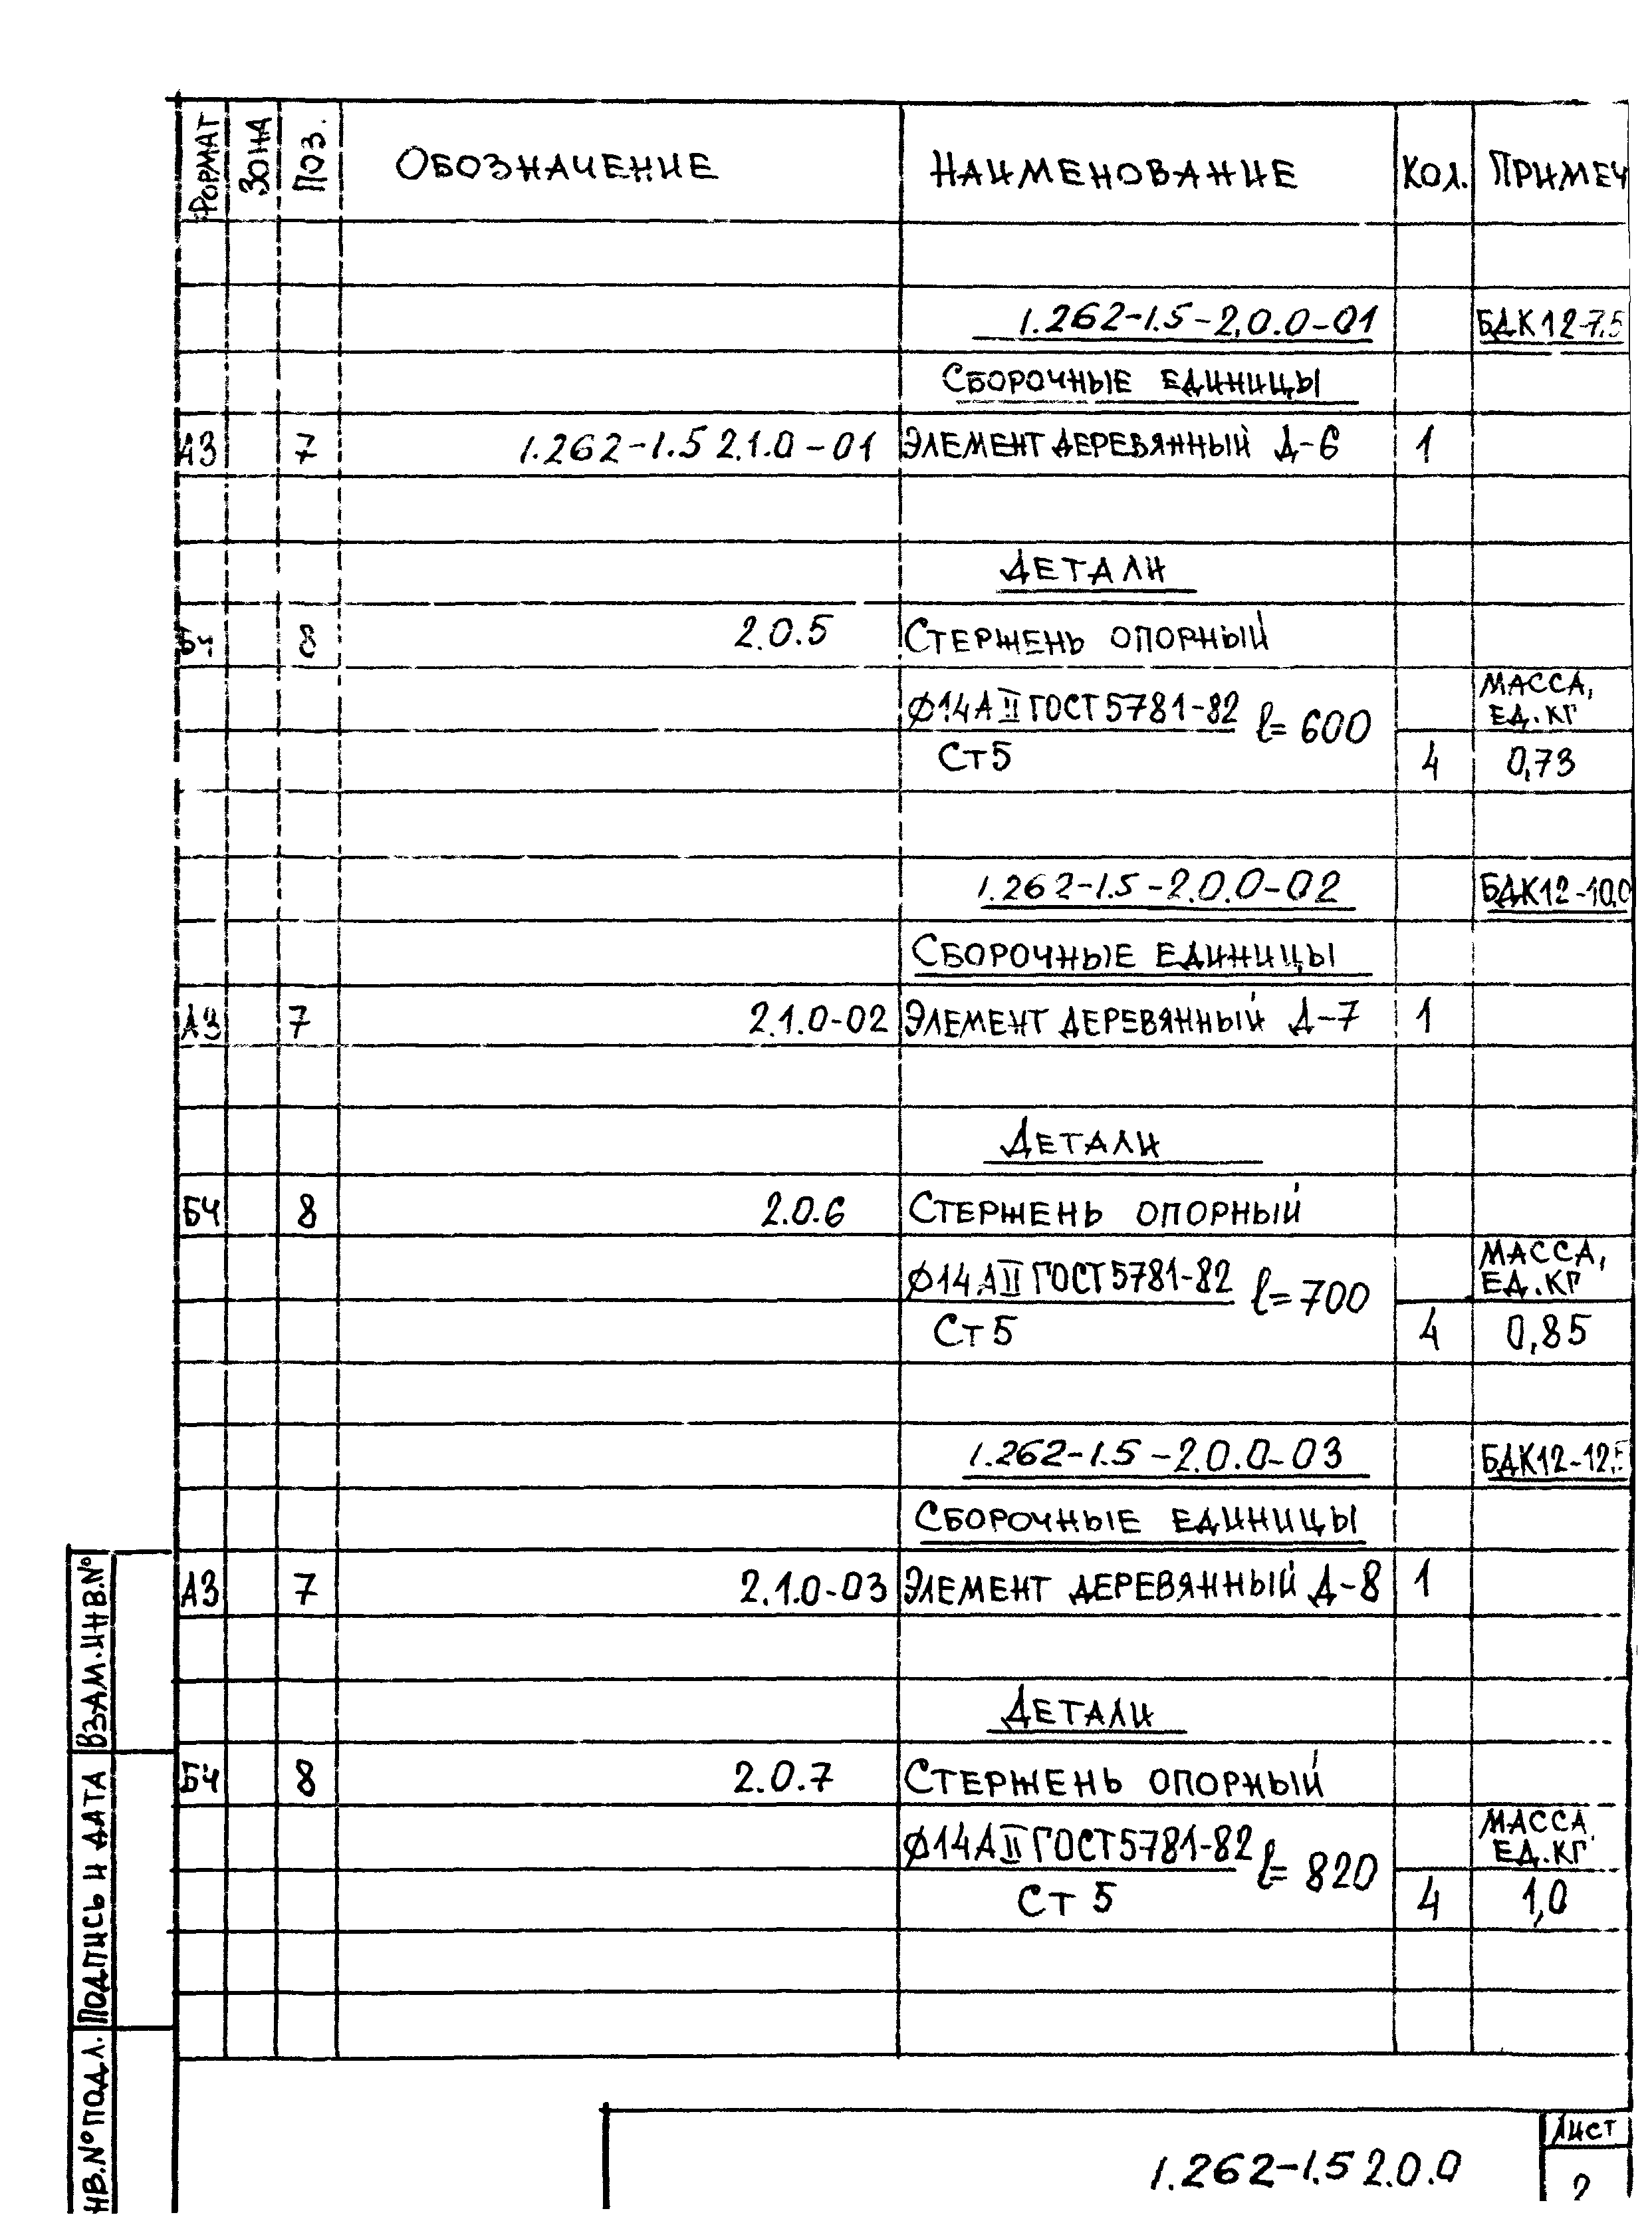 ФОРМАТ ЗОНА ПОЗ. ОБОЗНАЧЕНИЕ НАИМЕНОВАНИЕ КОЛ. ПРИМЕЧ
1.262-1.5-2.0.0-01 БДК12-7.5
СБОРОЧНЫЕ ЕДИНИЦЫ
А3 7 1.262-1.5 2.1.0-01 ЭЛЕМЕНТ ДЕРЕВЯННЫЙ Д-6 1
ДЕТАЛИ
БЧ 8 2.0.5 СТЕРЖЕНЬ ОПОРНЫЙ
Ø14АII ГОСТ 5781-82 ℓ=600 МАССА, ЕД.КГ
Ст5 4 0,73
1.262-1.5-2.0.0-02 БДК12-10,0
СБОРОЧНЫЕ ЕДИНИЦЫ
А3 7 2.1.0-02 ЭЛЕМЕНТ ДЕРЕВЯННЫЙ Д-7 1
ДЕТАЛИ
БЧ 8 2.0.6 СТЕРЖЕНЬ ОПОРНЫЙ
Ø14АII ГОСТ 5781-82 ℓ=700 МАССА, ЕД.КГ
Ст5 4 0,85
1.262-1.5-2.0.0-03 БДК12-12.5
СБОРОЧНЫЕ ЕДИНИЦЫ
А3 7 2.1.0-03 ЭЛЕМЕНТ ДЕРЕВЯННЫЙ Д-8 1
ДЕТАЛИ
БЧ 8 2.0.7 СТЕРЖЕНЬ ОПОРНЫЙ
Ø14АII ГОСТ 5781-82 ℓ=820 МАССА, ЕД.КГ
Ст 5 4 1,0
ВЗАМ.ИНВ.№
ПОДПИСЬ И ДАТА
НВ.№ ПОДЛ.
1.262-1.5 2.0.0
ЛИСТ
2